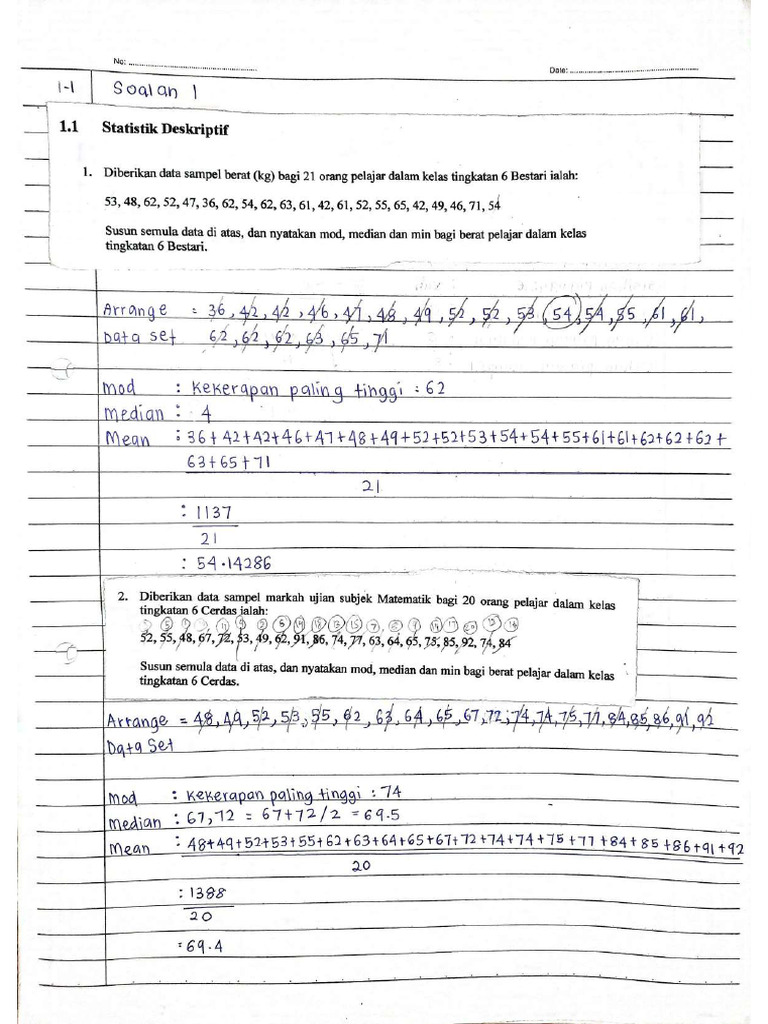 No:
Date:
1-1 Soalan 1
1.1 Statistik Deskriptif
1. Diberikan data sampel berat (kg) bagi 21 orang pelajar dalam kelas tingkatan 6 Bestari ialah:
53, 48, 62, 52, 47, 36, 62, 54, 62, 63, 61, 42, 61, 52, 55, 65, 42, 49, 46, 71, 54
Susun semula data di atas, dan nyatakan mod, median dan min bagi berat pelajar dalam kelas
tingkatan 6 Bestari.
Arrange = 36, 42, 42, 46, 47, 48, 49, 52, 52, 53, 54, 54, 55, 61, 61,
Data set 62, 62, 62, 63, 65, 71
mod : Kekerapan paling tinggi : 62
Median : 4
Mean : 36+42+42+46+47+48+49+52+52+53+54+54+55+61+61+62+62+62+
63+65+71
21
: 1137
21
: 54.14286
2. Diberikan data sampel markah ujian subjek Matematik bagi 20 orang pelajar dalam kelas
tingkatan 6 Cerdas ialah:
52, 55, 48, 67, 72, 53, 49, 62, 91, 86, 74, 77, 63, 64, 65, 75, 85, 92, 74, 84
Susun semula data di atas, dan nyatakan mod, median dan min bagi berat pelajar dalam kelas
tingkatan 6 Cerdas.
Arrange = 48, 49, 52, 53, 55, 62, 63, 64, 65, 67, 72, 74, 74, 75, 77, 84, 85, 86, 91, 92
Data Set
mod : Kekerapan paling tinggi : 74
Median : 67, 72 = 67+72/2 = 69.5
Mean : 48+49+52+53+55+62+63+64+65+67+72+74+74+75+77+84+85+86+91+92
20
: 1388
20
= 69.4